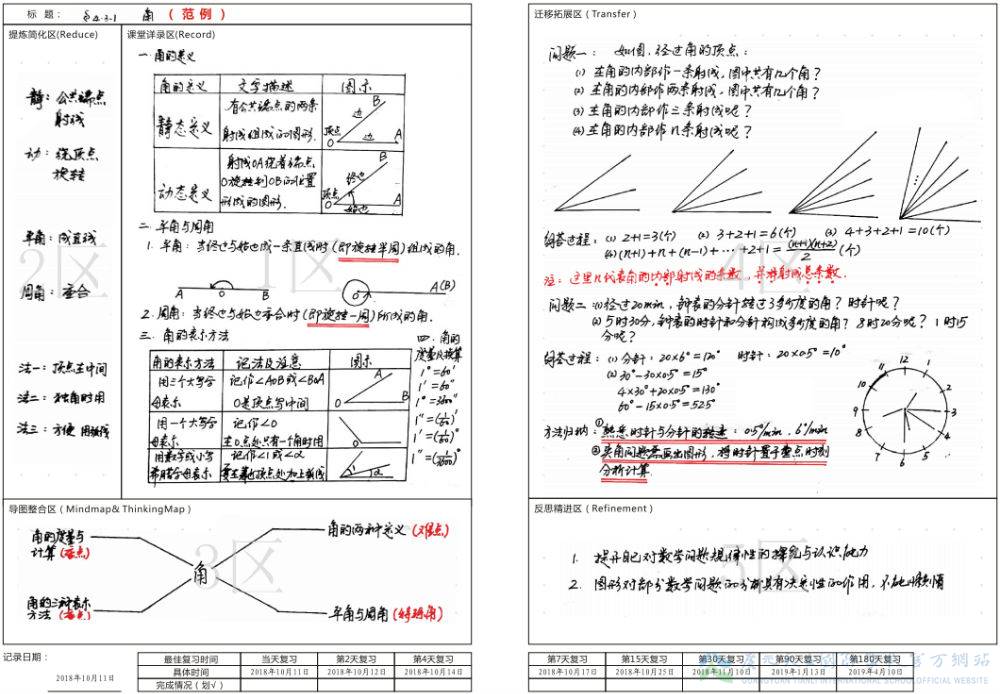 标 题： §4.3.1 角 （范例）
提炼简化区(Reduce)
静：公共端点
射线
动：绕顶点
旋转
平角：成直线
周角：重合
法一：顶点在中间
法二：独角时用
法三：方便 用弧线
2区
课堂详录区(Record)
一.角的定义
角的定义 文字描述 图示
静态定义 有公共端点的两条
射线组成的图形.
顶点 O 边 边 A B
动态定义 射线OA绕着端点
O旋转到OB的位置
形成的图形.
顶点 O 终边 始边 A B
二.平角与周角
1.平角：当终边与始边成一条直线时(即旋转半周)组成的角.
A O B
O A(B)
2.周角：当终边与始边重合时(即旋转一周)所成的角.
三.角的表示方法
角的表示方法 记法及注意 图示
用三个大写字
母表示
记作∠AOB或∠BOA
O是顶点写中间
A O B
用一个大写字
母表示
记作∠O
在O点处只有一个角时用
O
用数字或小写
希腊字母表示
记作∠1或∠α
要在靠近顶点处加上弧线
1 α
四.角的
度量及换算
1°=60′
1′=60″
1°=3600″
1″=(1/60)′
1′=(1/60)°
1″=(1/3600)°
1区
导图整合区（Mindmap& ThinkingMap）
角的度量与
计算(重点)
角的三种表示
方法(重点)
角
角的两种定义(难点)
平角与周角(特殊角)
3区
迁移拓展区（Transfer）
问题一：如图，经过角的顶点：
(1) 在角的内部作一条射线，图中共有几个角？
(2) 在角的内部作两条射线，图中共有几个角？
(3) 在角的内部作三条射线呢？
(4) 在角的内部作n条射线呢？
解答过程：(1) 2+1=3(个) (2) 3+2+1=6(个) (3) 4+3+2+1=10(个)
(4)(n+1)+n+(n-1)+…+2+1=(n+1)(n+2)/2(个)
注：这里n代表角的内部射线的条数，并非射线总条数.
问题二：(1)经过20min，钟表的分针转过多少度的角？时针呢？
(2) 5时30分，钟表的时针和分针构成多少度的角？8时20分呢？1时15
分呢？
解答过程：(1) 分针：20×6°=120° 时针：20×0.5°=10°
(2) 30°-30×0.5°=15°
4×30°+20×0.5°=130°
60°-15×0.5°=52.5°
方法归纳：①熟悉时针与分针的转速：0.5°/min，6°/min
②夹角问题需画出图形，将时针置于整点时刻
分析计算.
12 1 2 3 4 5 6 7 8 9 10 11
4区
反思精进区（Refinement）
1. 提升自己对数学问题规律性的探究与认识能力
2. 图形对部分数学问题的分析具有决定性的作用，不能出现懒惰
5区
记录日期：
2018年10月11日
最佳复习时间 当天复习 第2天复习 第4天复习
具体时间 2018年10月11日 2018年10月12日 2018年10月14日
完成情况（划√）
第7天复习 第15天复习 第30天复习 第90天复习 第180天复习
2018年10月17日 2018年10月25日 2018年11月10日 2019年1月13日 2019年4月10日
官方網站
GUANGYUAN TIANLI INTERNATIONAL SCHOOL OFFICIAL WEBSITE